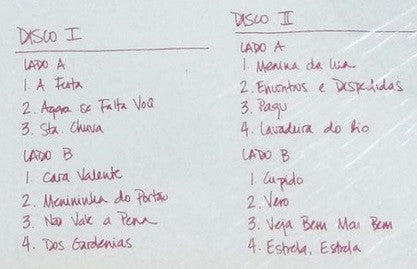 DISCO I
LADO A
1. A Festa
2. Agora Só Falta Você
3. Sta. Chuva
LADO B
1 Cara Valente
2. Menininha do Portão
3. Não Vale a Pena
4. Dos Gardenias
DISCO II
LADO A
1 Menina da Lua
2. Encontros e Despedidas
3. Pagu
4. Lavadeira do Rio
LADO B
1. Cupido
2. Vero
3. Veja Bem Meu Bem
4. Estrela, Estrela